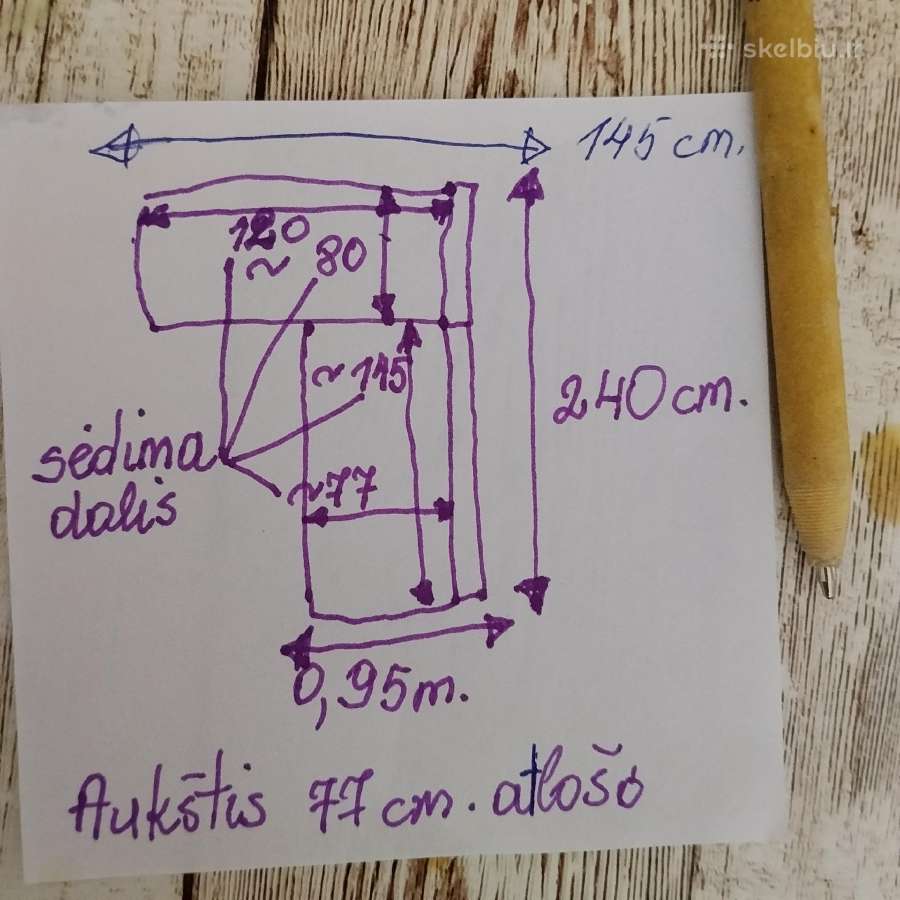 skelbiu.lt
145 cm.
120
~ 80
~ 145
240 cm.
sėdima
dalis
~77
0,95m.
Aukštis 77 cm. atlošo